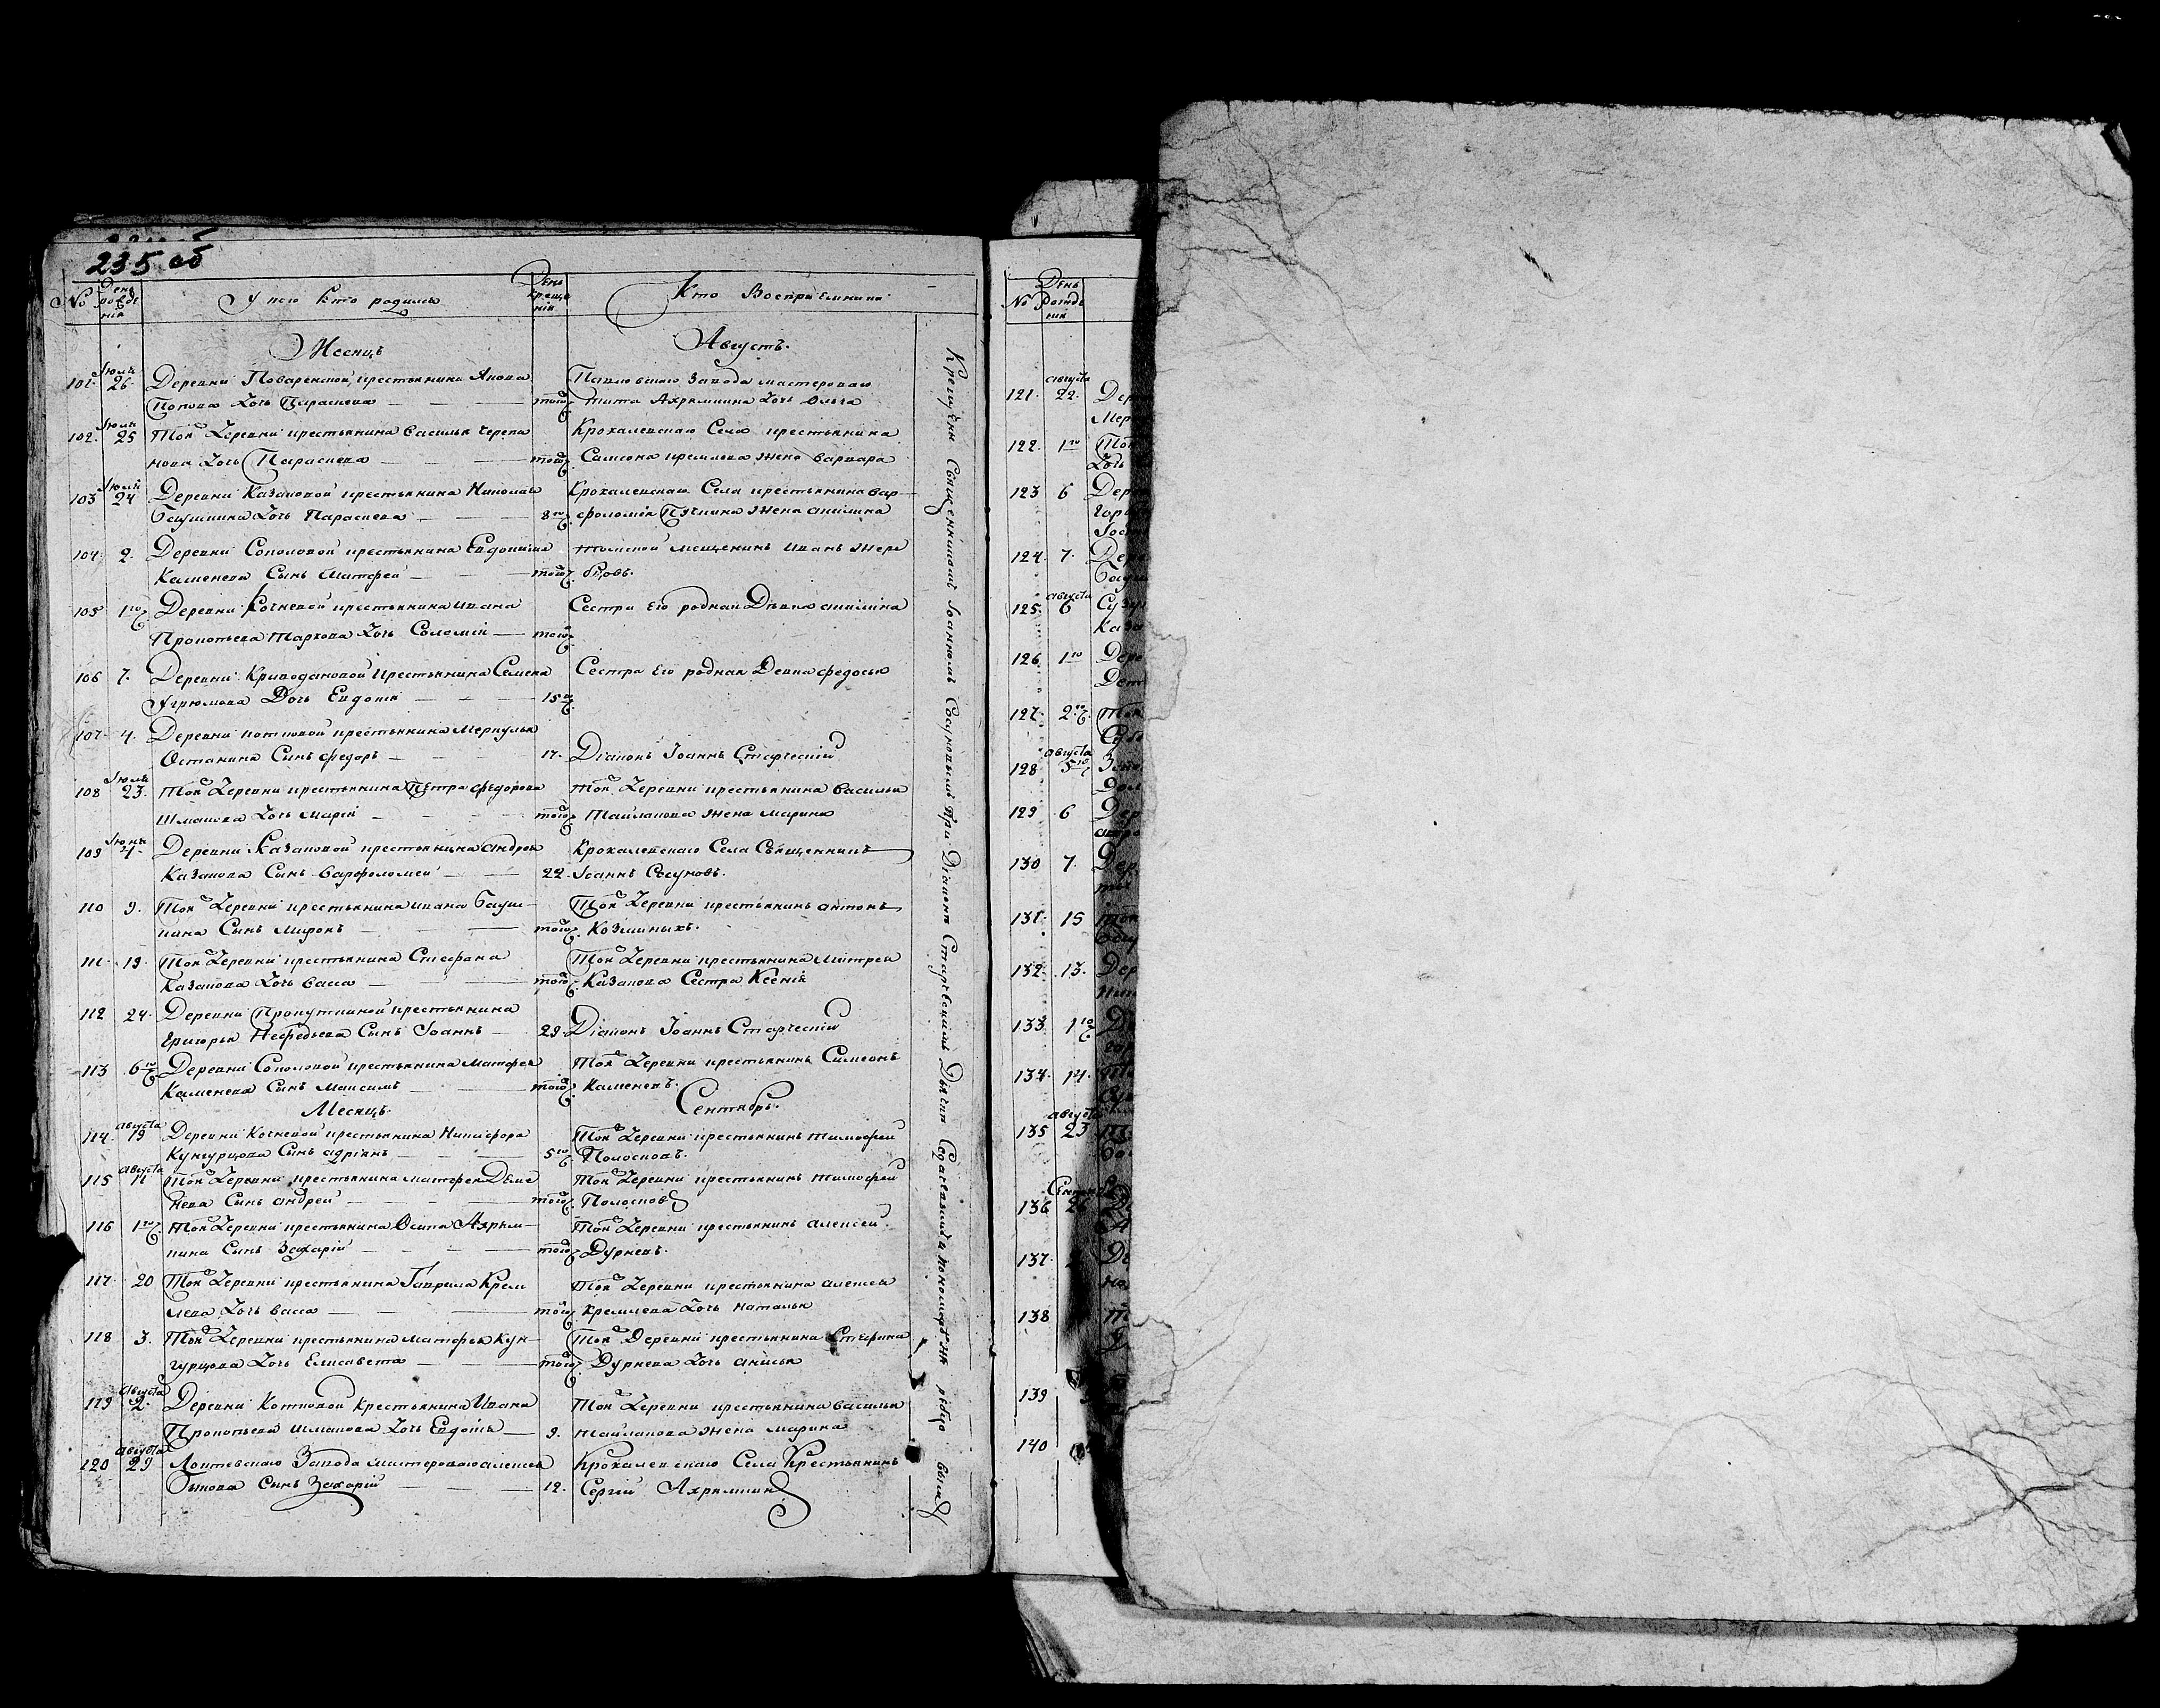 235 об
№
День рожде нія
У кого кто родился
День креще нія
Кто Восприемники
Месяцъ
Августъ.
101. Іюля 26. Деревни Поваренской крестьянина Якова
Попова Дочь Параскева — того
Павловскаго Завода мастероваго
Тита Ахрямкина Дочь Ольга
102. Іюля 25 Той Деревни крестьянина Василья Черепа
нова Дочь Параскева — того
Крохалевскаго Села крестьянина
Самсона Кремлева Жена Варвара
103 Іюля 24 Деревни Казаковой крестьянина Николая
Баушкина Дочь Параскева — 8го
Крохалевскаго Села крестьянина Вар-
фоломея Пячкина Жена Акилина
104. 2. Деревни Соколовой крестьянина Евдокима
Каменева Сынъ Матфей — того
Томской мещенинъ Иванъ Жере
бцовъ.
105 1го Деревни Кочневой крестьянина Ивана
Прокопьева Тархова Дочь Соломія — того
Сестра Его родная Девка Акилина
106 7. Деревни Криводановой Крестьянина Семена
Угрюмова Дочь Евдокія — 15го
Сестра Его родная Девка Федосья
107. 4. Деревни Котковой крестьянина Меркулья
Останина Сынъ Федоръ — 17.
Діаконъ Іоаннъ Стафіевскій
108 Іюля 23. Той Деревни крестьянина Петра Федорова
Шмакова Дочь Марія — того
Той Деревни крестьянина Василья
Тайлакова Жена Марина
109 4. Деревни Казаковой крестьянина Андрея
Казакова Сынъ Варфоломей — 22.
Крохалевскаго Села Священникъ
Іоаннъ Сосуновъ.
110 9. Той Деревни крестьянина Ивана Бауш-
кина Сынъ Миронъ — того
Той Деревни крестьянинъ Антонъ
Козминыхъ.
111. 19. Той Деревни крестьянина Стефана
Казакова Дочь Васса — того
Той Деревни крестьянина Митрея
Казакова Сестра Ксенія
112 24. Деревни Прокуткиной крестьянина
Григорья Нефедьева Сынъ Іоаннъ — 29
Діаконъ Іоаннъ Стафіевскій
113 6го Деревни Соколовой крестьянина Матфея
Каменева Сынъ Максимъ — того
Той Деревни крестьянинъ Симеонъ
Каменевъ.
Месяцъ.
Сентябрь.
114. Августа 19 Деревни Кочневой крестьянина Никифора
Кунгурцова Сынъ Адріянъ — 5го
Той Деревни крестьянинъ Тимофей
Полосковъ.
115 Августа 11 Той Деревни крестьянина Матфея Деме
нева Сынъ Андрей — того
Той Деревни крестьянинъ Тимофей
Полосковъ
116 1го Той Деревни крестьянина Осипа Ахрям-
кина Сынъ Захарій — того
Той Деревни крестьянинъ Алексей
Дурневъ.
117 20 Той Деревни крестьянина Гаврила Крем
лева Дочь Васса — того
Той Деревни крестьянина Алексея
Кремлева Дочь Наталья
118 3. Той Деревни крестьянина Матфея Кун-
гурцова Дочь Елисавета — того
Той Деревни крестьянина Стефана
Дурнева Дочь Анисья
119 Августа 2. Деревни Котковой Крестьянина Ивана
Прокопьева Шмакова Дочь Евдокія — 9.
Той Деревни крестьянина Василья
Тайлакова Жена Марина
120 Августа 29 Локтевскаго Завода мастероваго Алексея
Быкова Сынъ Захарій — 12.
Крохалевскаго Села Крестьянинъ
Сергій Ахрямкинъ
Священникомъ Іоанномъ Сосуновымъ При Діаконе
№
День рожде нія
121. Августа 22. Дер
Мер
122. 1го Той
Дочь
123 6 Дер
124. 7. Дер
125. Августа 6
Каза
126 1го Дере
127. 2го Той
128 Августа
129 6 Дер
130 7. Дер
131. 15 Той
132. 13. Дер
133 1го
134. 14.
135 Августа 23
136
137.
138
139
140